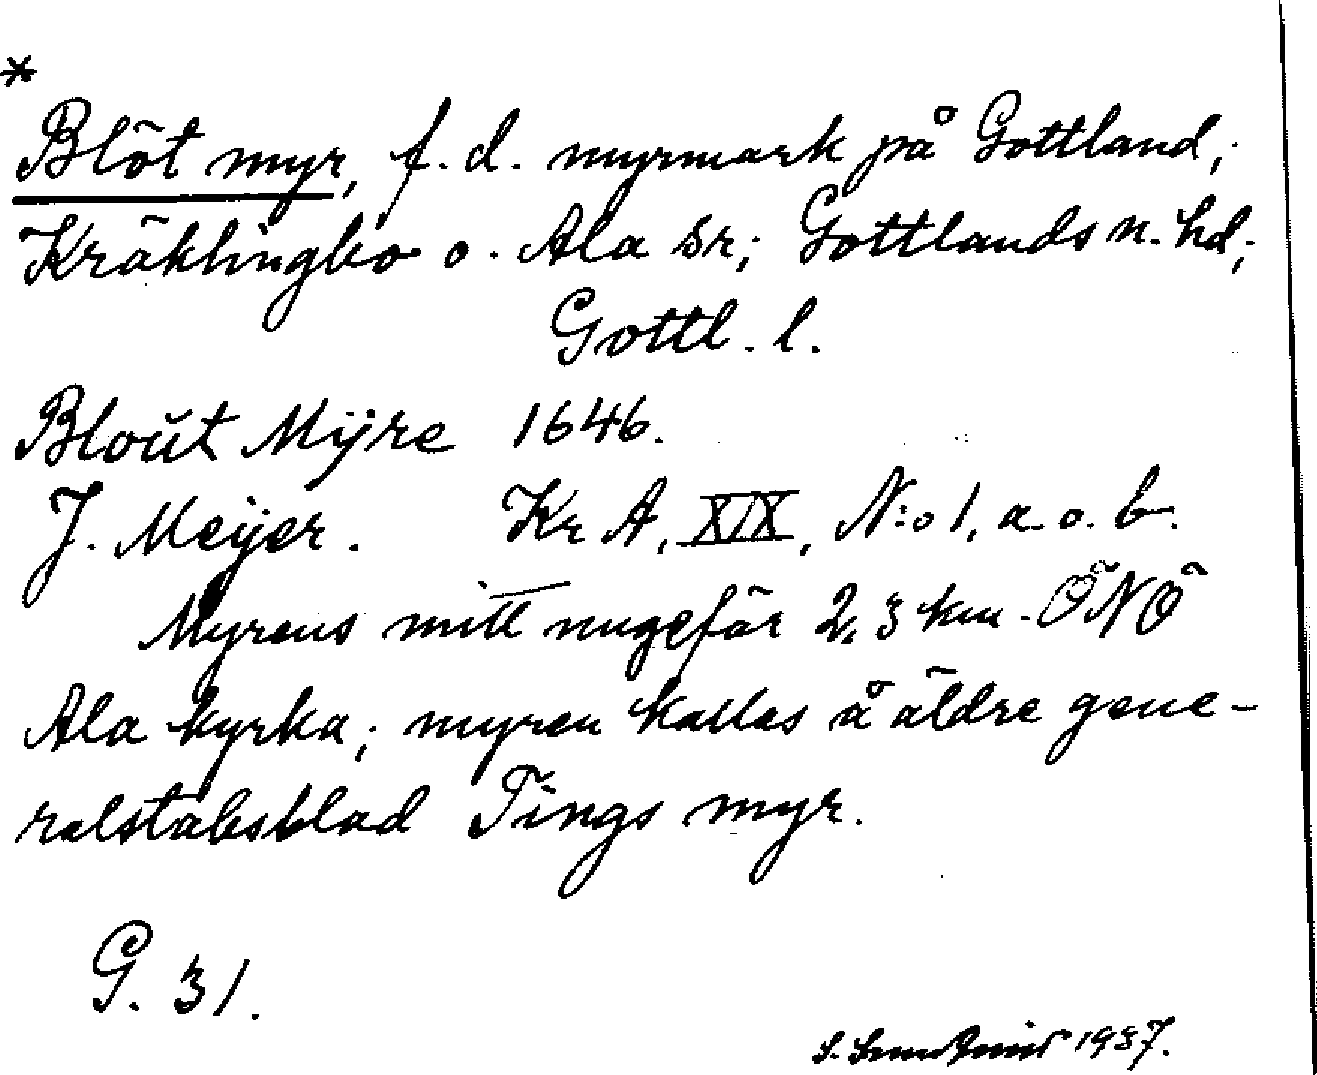 *
Blöt myr, f. d. myrmark på Gottland,
Kräklingbo o. Ala sr; Gottlands n. hd;
Gottl. l.
Bloŭt Mÿre 1646.
J. Meÿer. Kr A, XIX, N:o 1, a o. b.
Myrens mitt nugefär 2,3 km. ÖNÖ
Ala kyrka; myren kallas å äldre gene-
ralstabsblad Tings myr.
G. 31.
S. 1937.